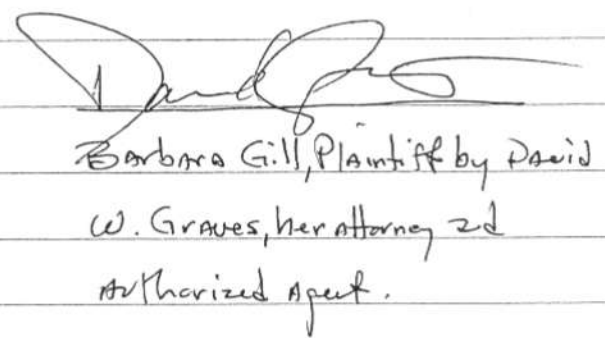 Barbara Gill, Plaintiff by David
W. Graves, her attorney 2d
Authorized Agent.